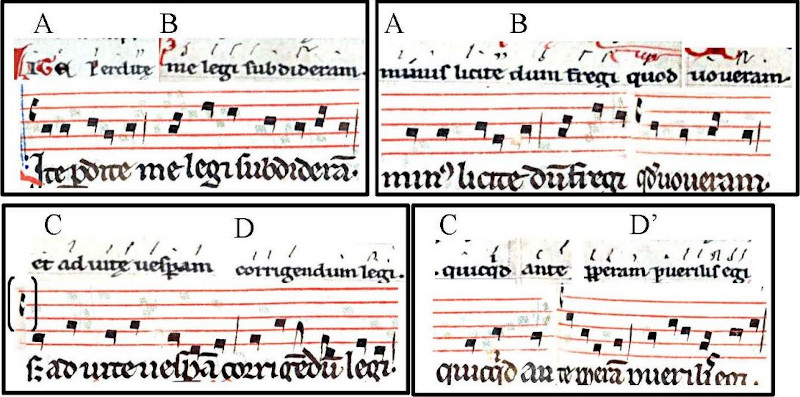 A B
Lite perdite me legi subdideram.
Ite pdite me legi subdiderā.
A B
minus licite dum fregi quod uoueram.
minꝰ licite dū fregi qđ uoueram.
C D
et ad uitę uesꝑam corrigendum legi.
ad uite uesꝑā corrigēdū legi.
C D'
quicqd ante ꝑperam puerilit̕ egi
quicqd ante ꝑperā puerilit̕ egi.